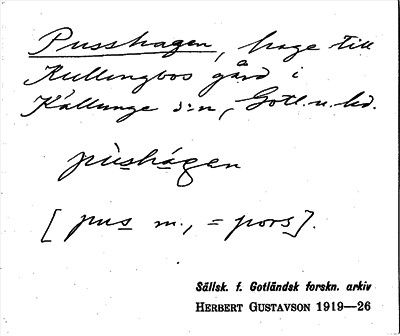 Pusshagen, hage till
Kullingbos gård i
Källunge s:n, Gotl. n. hd.
pùshágen
[pus m., = pors].
Sällsk. f. Gotländsk forskn. arkiv
HERBERT GUSTAVSON 1919—26